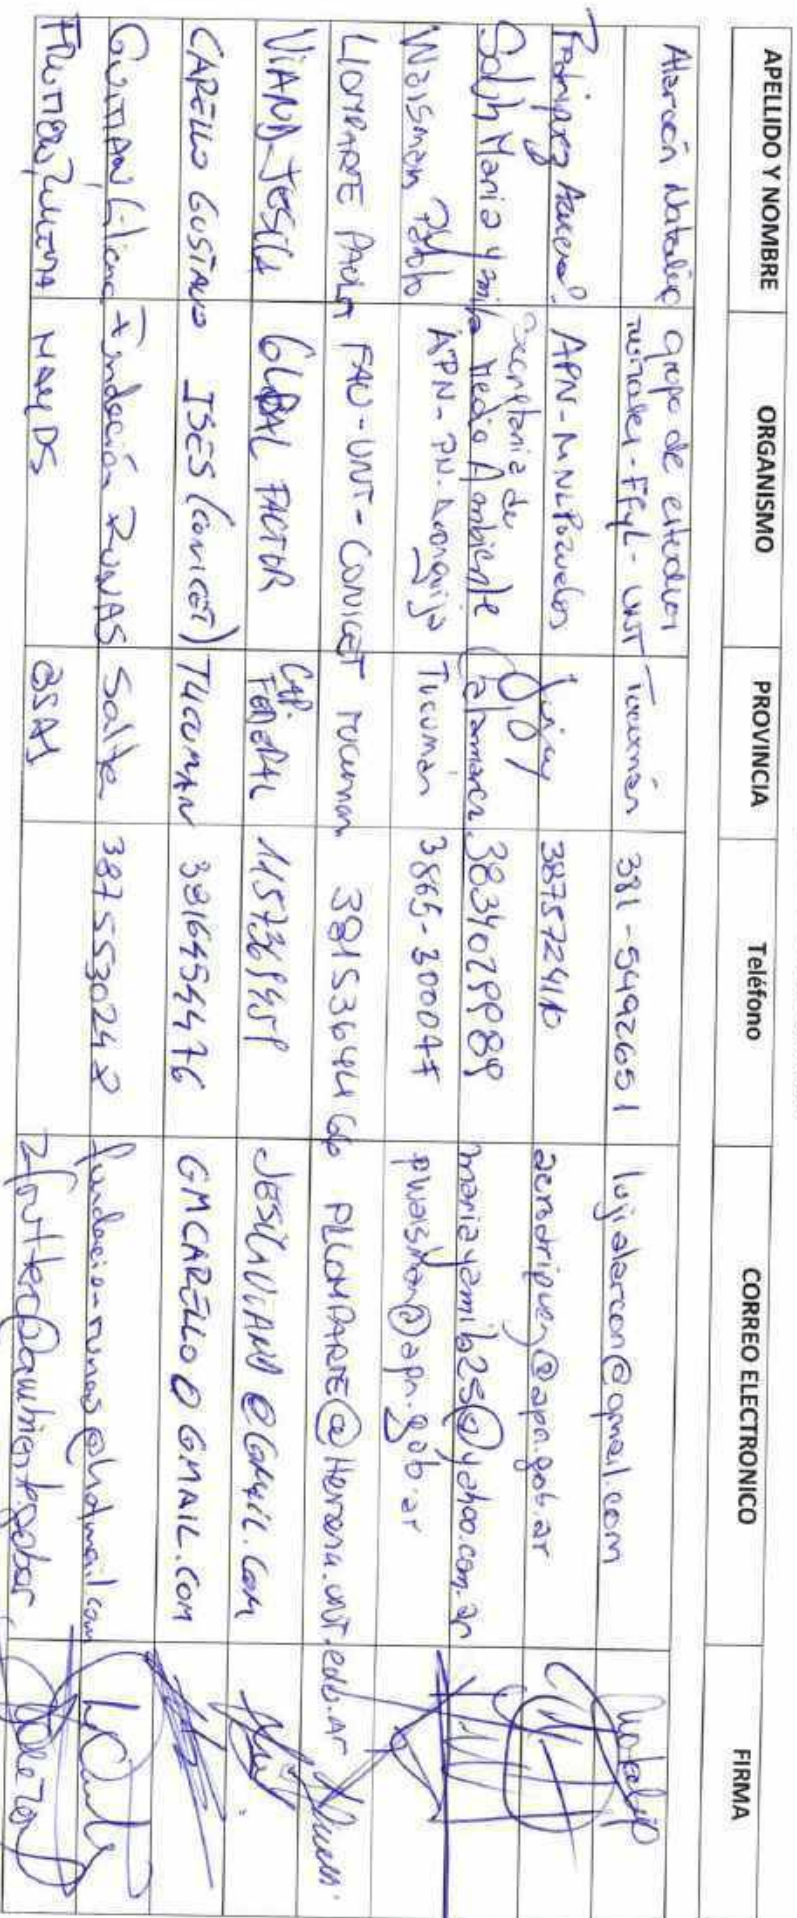 APELLIDO Y NOMBRE ORGANISMO PROVINCIA Teléfono CORREO ELECTRONICO FIRMA
Alarcón Natalia grupo de estudios rurales - FFyL - UNT Tucumán 381-5492651 lujialarcon@gmail.com Natalia
APN - MNL Pozuelos Jujuy 3875724110 @apn.gob.ar
Maria Yamila Secretaria de Medio Ambiente Catamarca 3834029989 mariayamila25@yahoo.com.ar
Waisman Pablo APN - PN. Aconquija Tucumán 3865-300047 pwaisman@apn.gob.ar
LLOMPARTE PAULA FAU - UNT - CONICET Tucuman PLLOMPARTE@Herrera.UNT.edu.Ar
VIANA JESICA GLOBAL FACTOR CAP. FEDERAL JESICAVIANA@GMAIL.COM
CARELLO GUSTAVO ISES (CONICET) TUCUMAN 3816454476 GMCARELLO@GMAIL.COM
Liliana Fundación RUNAS Salta 3875530242 fundacion-runas@hotmail.com
MAyDS BSAS